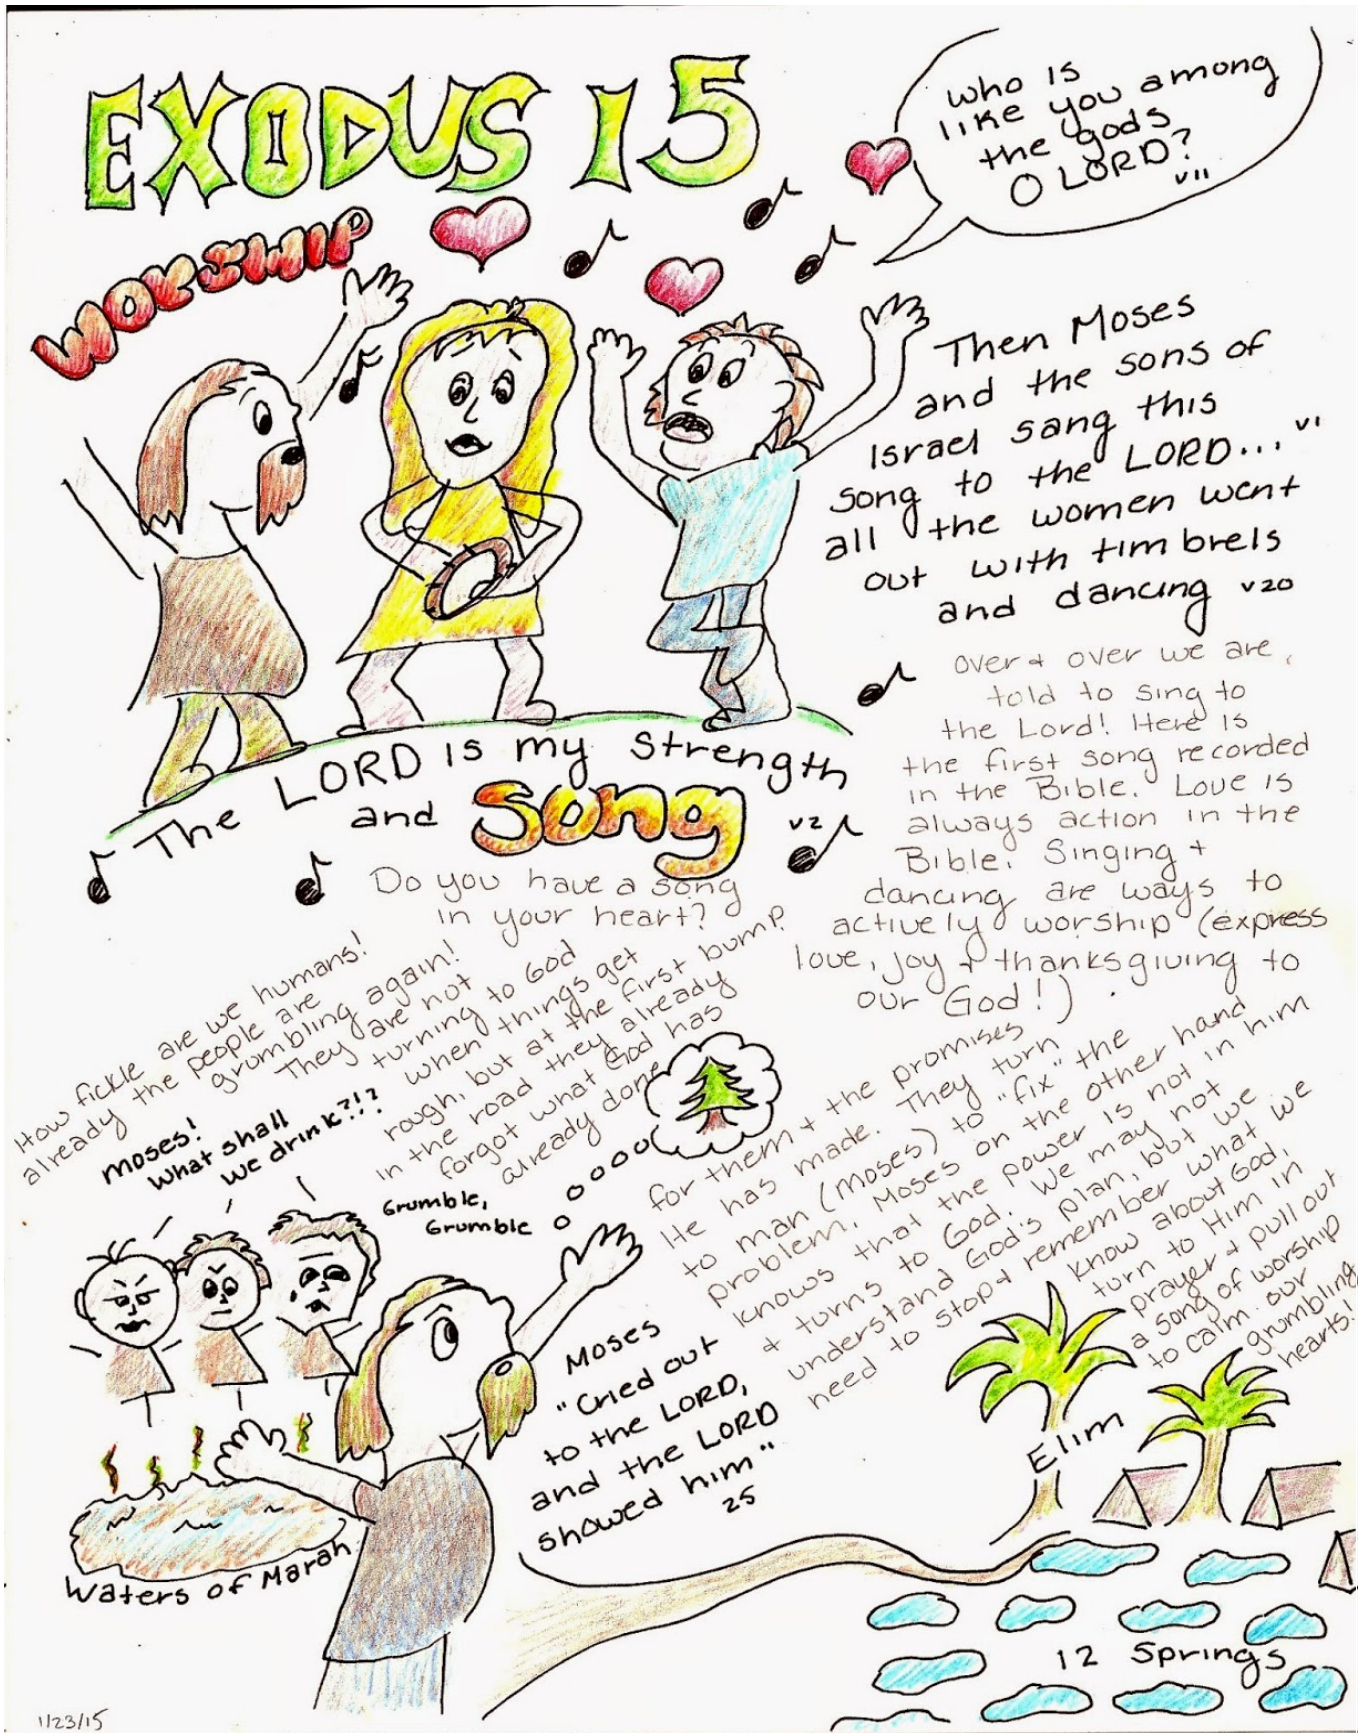 EXODUS 15
WORSHIP
who is
like you among
the gods
O LORD?
v11
Then Moses
and the sons of
Israel sang this
song to the LORD... v1
all the women went
out with timbrels
and dancing v20
The LORD is my Strength
and Song v2
over + over we are
told to sing to
the Lord! Here is
the first song recorded
in the Bible. Love is
always action in the
Bible. Singing +
dancing are ways to
actively worship (express
love, joy + thanksgiving to
our God!)
Do you have a song
in your heart?
How fickle are we humans!
already the people are
grumbling again!
They are not
turning to God
when things get
rough, but at the first bump
in the road they already
forgot what God has
already done
for them + the promises
He has made. They turn
to man (Moses) to "fix" the
problem. Moses on the other hand
knows that the power is not in him
+ turns to God. We may not
understand God's plan, but we
need to stop + remember what we
know about God,
turn to Him in
prayer + pull out
a song of worship
to calm our
grumbling
hearts!
Moses!
What shall
we drink?!?
Grumble,
Grumble
Moses
"Cried out
to the LORD,
and the LORD
showed him"
25
Waters of Marah
Elim
12 Springs
1/23/15